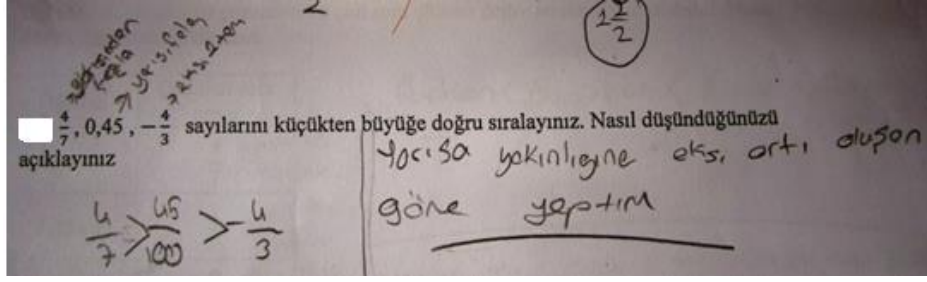 2
1 1/2
yarısından fazla
yarısı fela
eksi 2 tam
4/7, 0,45, -4/3 sayılarını küçükten büyüğe doğru sıralayınız. Nasıl düşündüğünüzü
açıklayınız
Yarısa yakınlığına eksi artı oluşan
göre yaptım
4/7 > 45/100 > -4/3